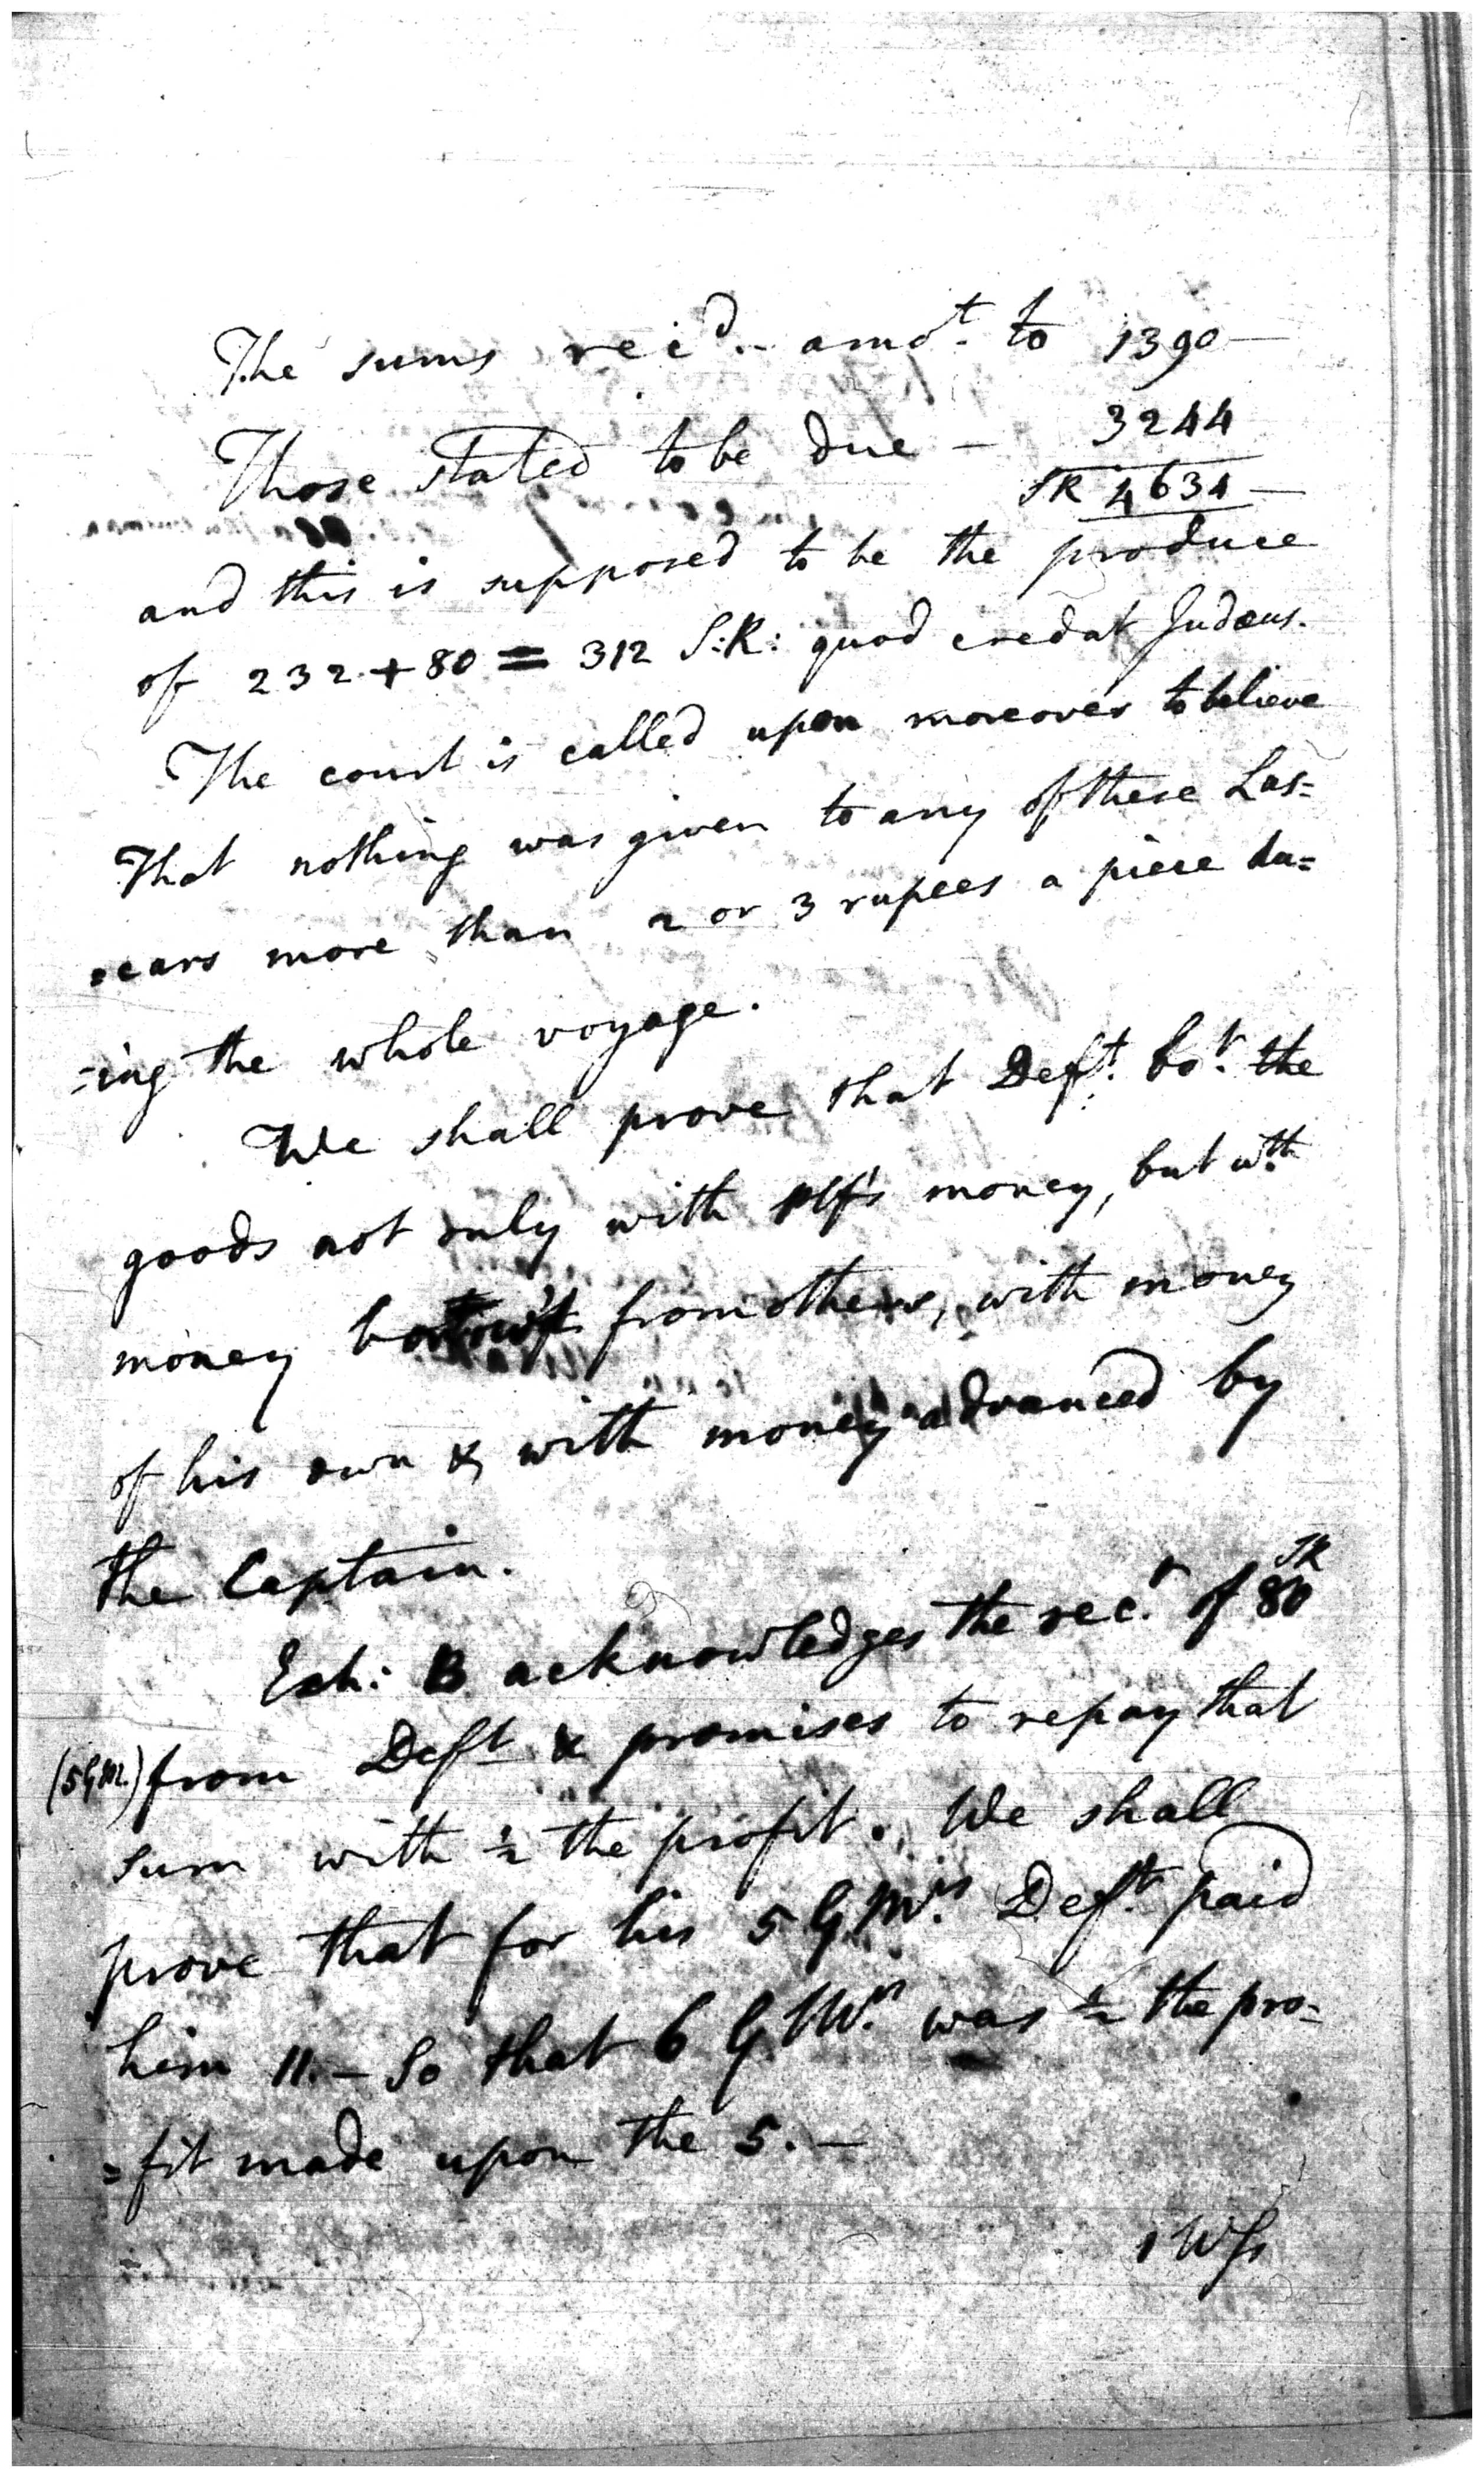 The sums rec'd. amot. to 1390 —
Those stated to be due — 3244
SR 4634 —
and this is supposed to be the produce
of 232 + 80 = 312 S:R: quod credat Judæus.
The court is called upon moreover to believe
That nothing was given to any of these Las=
=cars more than 2 or 3 rupees a piece du=
=ing the whole voyage.
We shall prove that Deft. bot. the
goods not only with Plf's money, but wth
money from others, with money
of his own & with money advanced by
the Captain.
Exh: B acknowledges the rect. of 80 SR
(5 G M.) from Deft & promises to repay that
sum with ½ the profit. We shall
prove that for his 5 G. Mrs. Deft. paid
him 11. — So that 6 G. Mrs. was ½ the pro=
=fit made upon the 5. —
1 Wss